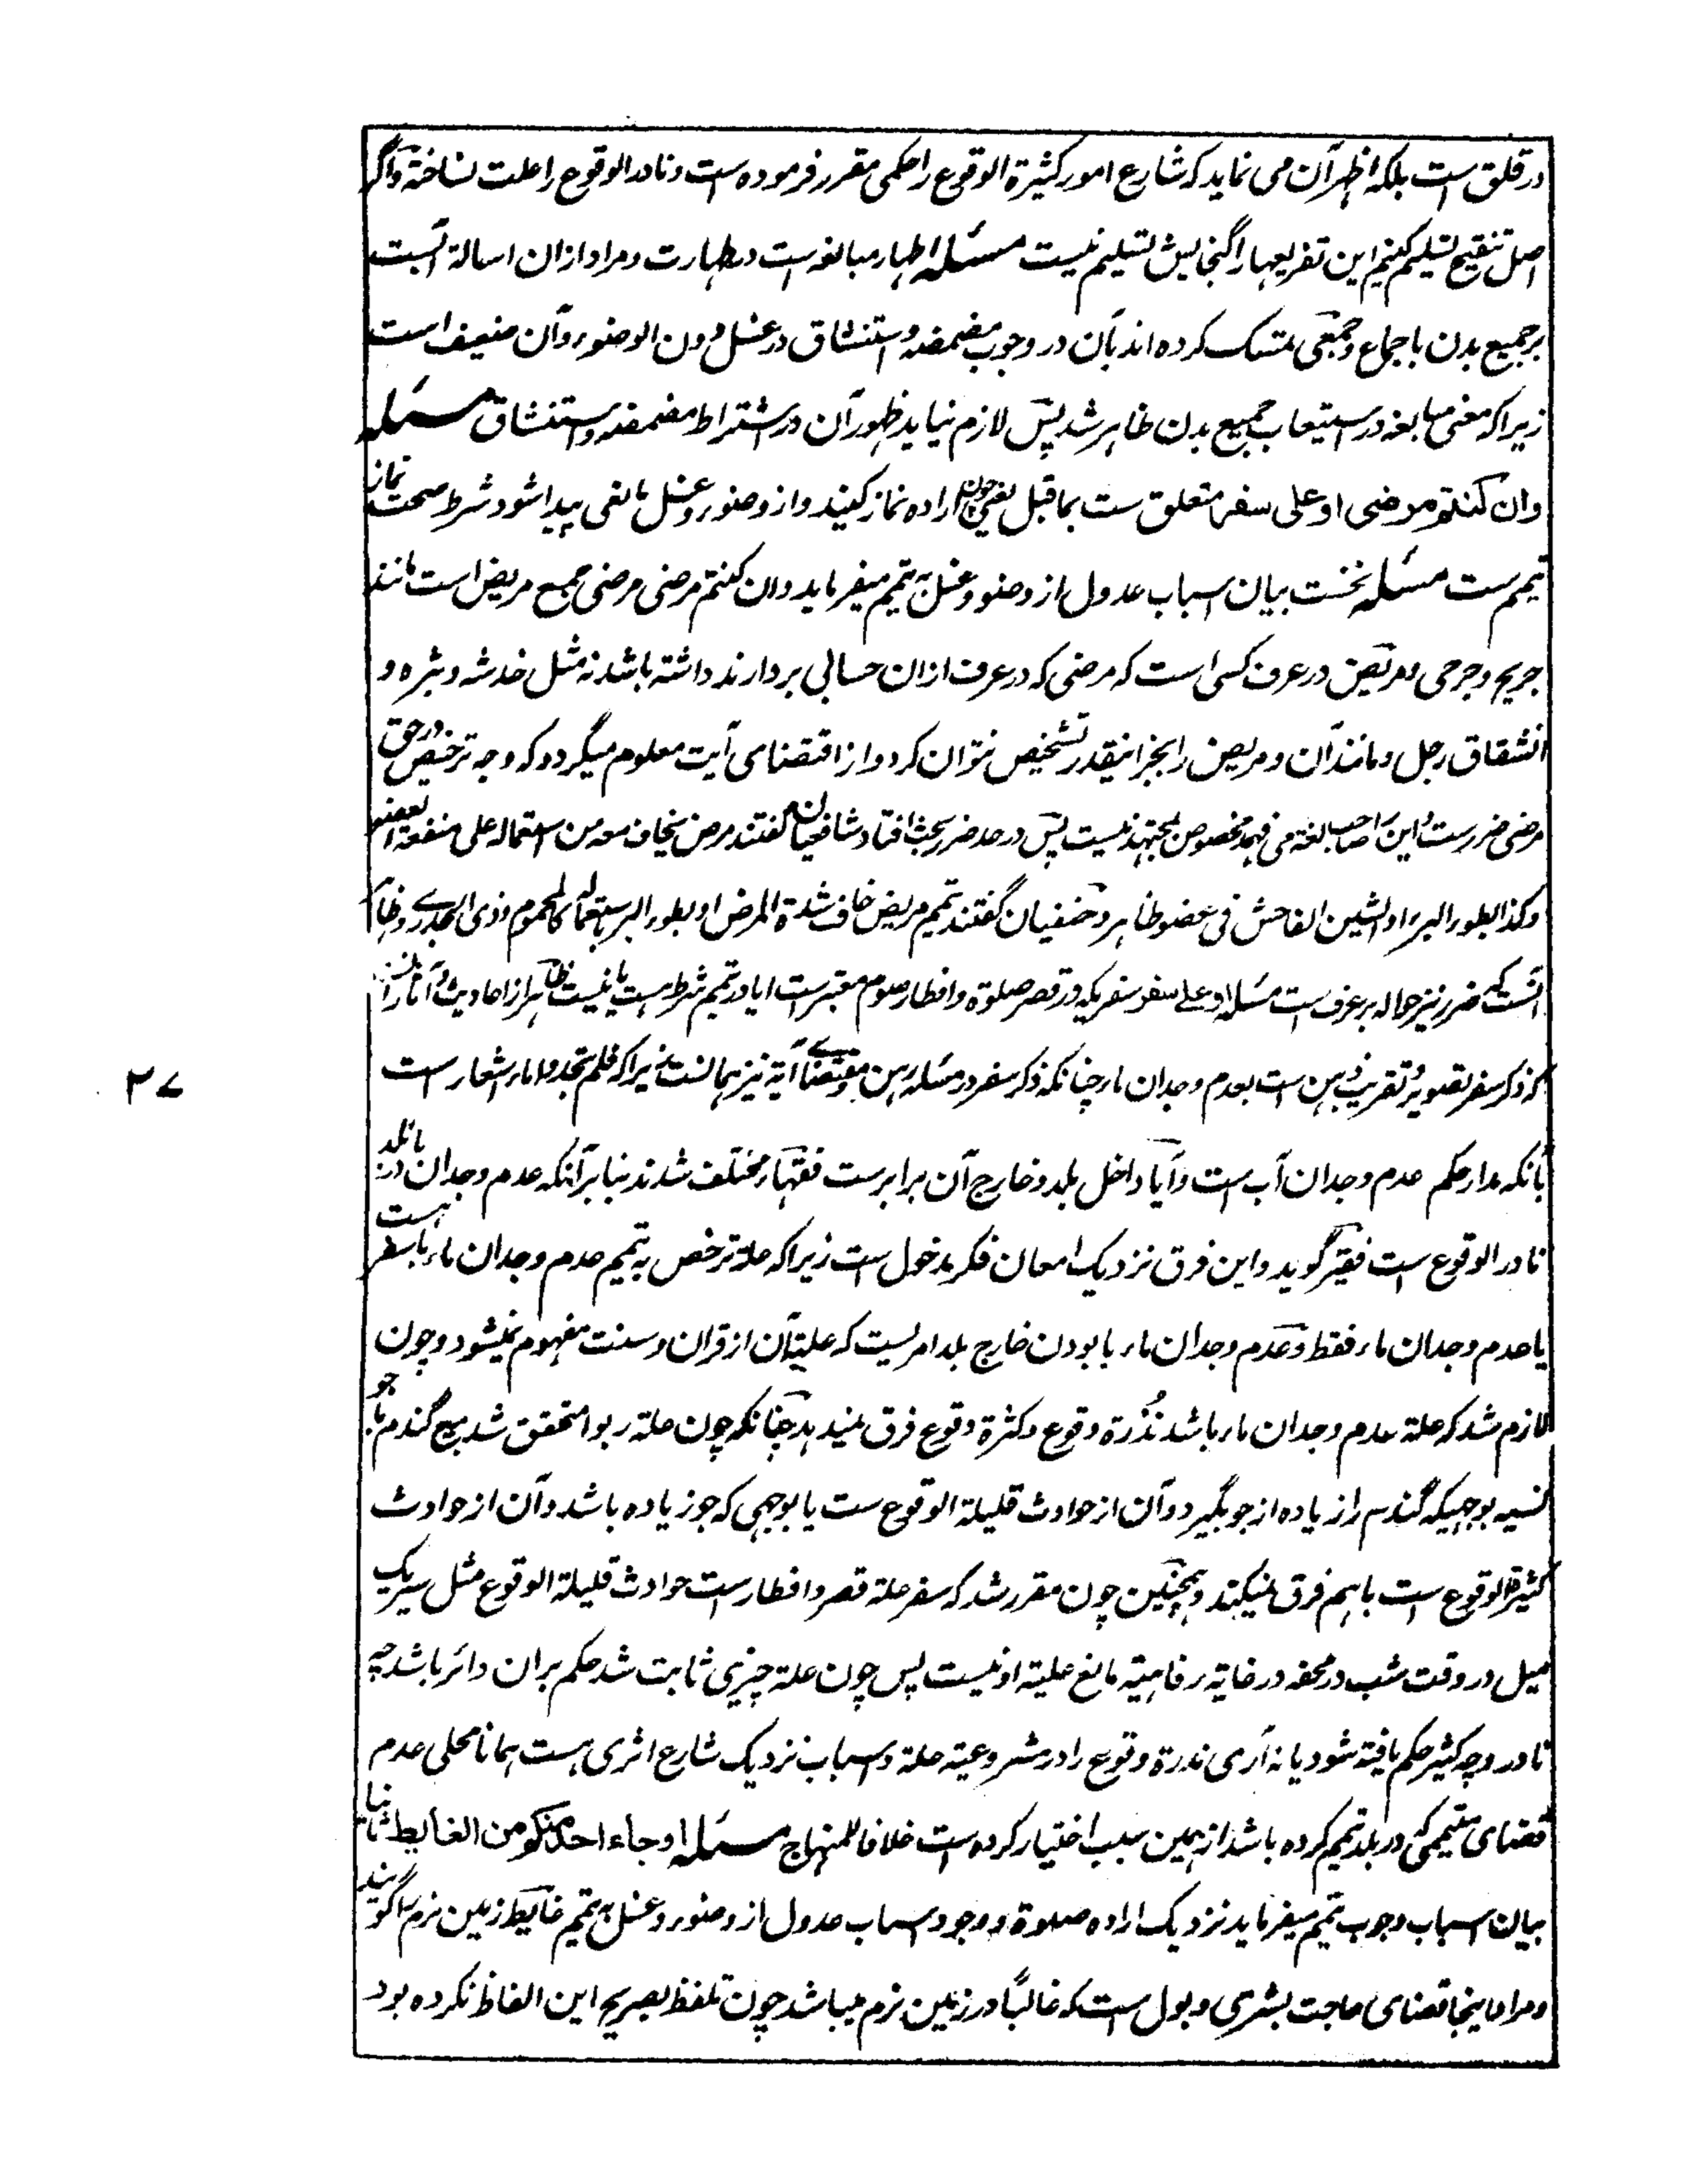 در قلق است بلکه اظهر آن می نماید که شارع امور کثیرة الوقوع را حکمی مقرر فرموده است و نادر الوقوع را علت نساخته و اگر
اصل تنقیح تسلیم کنیم این تفریعها را گنجایش تسلیم نیست مسئله اطهار مبالغه است در طهارت و مراد ازان اسالة آبست
بر جمیع بدن باجماع و جمعی تمسک کرده اند بآن در وجوب مضمضه و استنشاق در غسل دون الوضوء و آن ضعیف است
زیرا که معنی مبالغه در استیعاب جمیع بدن ظاهر شد پس لازم نیاید ظهور آن در اشتراط مضمضه و استنشاق مسئله
وان کنتم مرضی او علی سفر متعلق ست بماقبل یعنی چون اراده نماز کنید و از وضوء و غسل مانعی پیدا شود شرط صحت نماز
تیمم ست مسئله نخست بیان اسباب عدول از وضو و غسل به تیمم میفرماید وان کنتم مرضی مرضی جمع مریض است مانند
جریح و جرحی و مریض در عرف کسی است که مرضی که در عرف ازان حسابی بردارند داشته باشد نه مثل خدشه و بثره و
انشقاق رجل و مانند آن و مریض را بجز اینقدر تشخیص نتوان کرد و از اقتضای آیت معلوم میگردد که وجه ترخیص در حق
مرضی ضررست و این را صاحب لغة می فهمد مخصوص بمجتهد نیست پس در حد ضرر بحث افتاد شافعیان گفتند مرض یخاف معه من استعماله علی منفعة العضو
وکذا بطوء البرء او الشین الفاحش فی عضو ظاهر و حنفیان گفتند تیمم مریض خاف شدة المرض او بطوء البرء باستعماله کالمحموم و ذی الجدری و ظاهر
آنست که ضرر نیز حواله بر عرف است مسئله او علی سفر سفریکه در قصر صلوة و افطار صوم معتبر است ایا در تیمم شرط هست یا نیست ظاهر از احادیث و آثار
که ذکر سفر تصویر و تقریب ذهن است بعدم وجدان ماء چنانکه ذکر سفر در مسئله رهن و مقتضای آیة نیز همانست زیرا که فلم تجدوا ماء اشعار است
بآنکه مدار حکم عدم وجدان آب است و آیا داخل بلد و خارج آن برابرست فقهاء مختلف شدند بنا بر آنکه عدم وجدان در بلد
نادر الوقوع است فقیر گوید و این فرق نزدیک امعان فکر مدخول است زیرا که علة ترخص به تیمم عدم وجدان ماء با سفر هست
یا عدم وجدان ماء فقط و عدم وجدان ماء با بودن خارج بلد امریست که علیة آن از قران و سنت مفهوم نمیشود و چون
لازم شد که علة عدم وجدان ماء باشد نُدرة وقوع و کثرة وقوع فرق نمیدهد چنانکه چون علة ربوا متحقق شد بیع گندم با جو
نسیه بوجهیکه گندم را زیاده از جو بگیرد و آن از حوادث قلیلة الوقوع ست یا بوجهی که جو زیاده باشد و آن از حوادث
کثیرة الوقوع است باهم فرق نمیکند و همچنین چون مقرر شد که سفر علة قصر و افطار ست حوادث قلیلة الوقوع مثل سیر یک
میل در وقت شب در محفه در غایة رفاهیة مانع علیة او نیست پس چون علة چیزی ثابت شد حکم بران دائر باشد چه
نادر و چه کثیر حکم یافته شود یا نه آری ندرة وقوع را در مشروعیة علة و اسباب نزدیک شارع اثری هست همانا محلی عدم
قضای متیممی که در بلد تیمم کرده باشد از همین سبب اختیار کرده است خلافا للمنهاج مسئله او جاء احد منکم من الغایط ثانیا
بیان اسباب وجوب تیمم میفرماید نزدیک اراده صلوة و وجود اسباب عدول از وضوء و غسل به تیمم غایط زمین نرم را گویند
و مراد اینجا قضای حاجت بشری و بول است که غالباً در زمین نرم میباشد چون تلفظ بصریح این الفاظ نکرده بود
۲۷